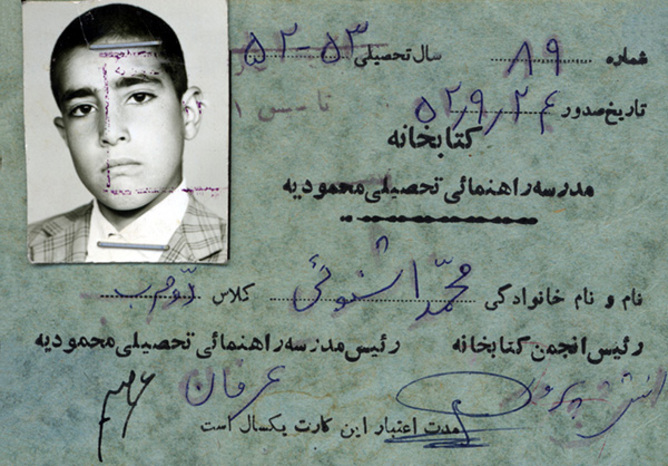 شماره ۸۹ سال تحصیلی ۵۳-۵۲
تاریخ صدور ۵۲٫۹٫۲۴
کتابخانه
مدرسه راهنمائی تحصیلی محمودیه
نام و نام خانوادگی محمّد اشنوئی کلاس دوّم ب
رئیس انجمن کتابخانه رئیس مدرسه راهنمائی تحصیلی محمودیه
عرفان
مدت اعتبار این کارت یکسال است